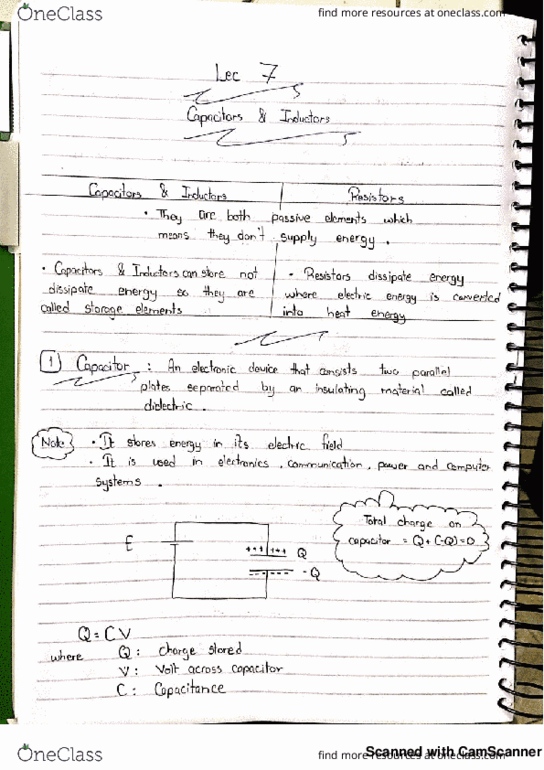 OneClass
find more resources at oneclass.com
Lec 7
Capacitors & Inductors
Capacitors & Inductors
Resistors
• They are both passive elements which
means they don't supply energy.
• Capacitors & Inductors can store not
dissipate energy so they are
called storage elements
• Resistors dissipate energy
where electric energy is converted
into heat energy
1 Capacitor : An electronic device that consists two parallel
plates seperated by an insulating material called
dielectric.
Note
• It stores energy in its electric field
• It is used in electronics, communication, power and computer
systems.
Total charge on
capacitor = Q + (-Q) = 0
E
++++ +++ Q
- Q
Q = CV
where Q : charge stored
V : Volt across capacitor
C : Capacitance
OneClass
find more resources at oneclass.com
Scanned with CamScanner